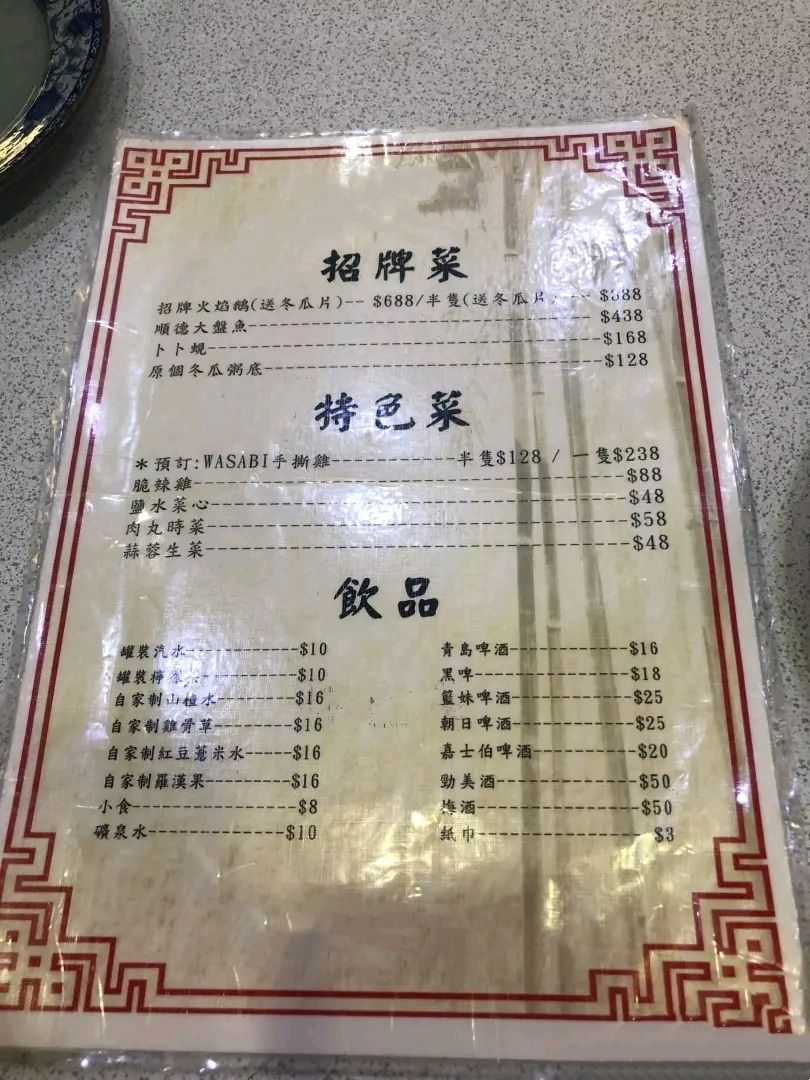 招牌菜
招牌火焰鵝(送冬瓜片)-- $688/半隻(送冬瓜片)-- $388
順德大盤魚--------------------$438
卜卜蜆--------------------$168
原個冬瓜粥底--------------------$128
特色菜
*預訂:WASABI手撕雞------------半隻$128 / 一隻$238
脆辣雞--------------------$88
鹽水菜心--------------------$48
肉丸時菜--------------------$58
蒜蓉生菜--------------------$48
飲品
罐裝汽水------------$10
罐裝檸檬------------$10
自家制山楂水---------$16
自家制雞骨草---------$16
自家制紅豆薏米水-----$16
自家制羅漢果---------$16
小食----------------$8
礦泉水--------------$10
青島啤酒------------$16
黑啤----------------$18
籃妹啤酒------------$25
朝日啤酒------------$25
嘉士伯啤酒----------$20
勁美酒--------------$50
梅酒----------------$50
紙巾----------------$3